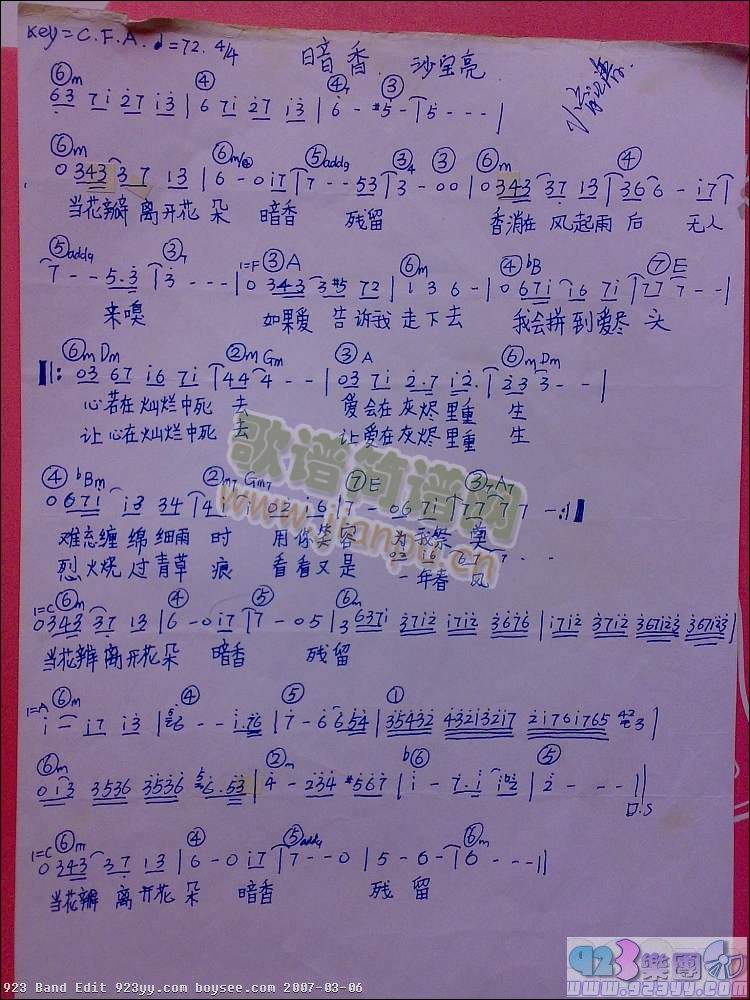 Key=C.F.A. ♩=72. 4/4
暗香 沙宝亮
⑥m ④ ④ ③
63 7i 27 i3 | 6 7i 27 i3 | 6 - #5 - | 5 - - - |
⑥m ⑥m/ ⑤add9 ③4 ③ ⑥m ④
0 343 37 13 | 6 - 0 i7 | 7 - - 53 | 3 - 00 | 0 343 37 13 | 36 6 - i7 |
当花瓣 离开花 朵 暗香 残留 香消在 风起雨 后 无人
⑤add9 ③7 1=F ③A ⑥m ④bB ⑦E
7 - - 5.3 | 3 - - - | 0 343 3#5 72 | 1 3 6 - | 0 67i i6 7i | 77 7 - - |
来嗅 如果爱 告诉我 走下去 我会拼 到爱尽 头
⑥m Dm ②m Gm ③A ⑥m Dm
‖: 03 67 i6 7i | 44 4 - - | 03 7i 2.7 i2. | 23 3 - - |
心若在灿烂中死 去 爱会在灰烬里重 生
让心在灿烂中死 去 让爱在灰烬里重 生
④bBm ②m7 Gm7 ⑦E ③7 A7
0 67i i3 34 | 4i i 02 i6 | 7 - 06 7i | 77 7 7 - :‖
难忘缠 绵细雨 时 用你笑容 为我祭 奠
02 i6 67 7 - -
烈火烧 过青草 痕 看看又是 一年春 风
1=C ⑥m ④ ⑤ ⑥m
0 343 37 13 | 6 - 0 i7 | 7 - 05 | 3 637i 37i2 i7i2 3676 | i7i2 37i2 367i23 367i23 |
当花瓣 离开花 朵 暗香 残留
1=A ⑥m ④ ⑤ ①
i - i7 i3 | 6 - - i.76 | 7 - 6 654 | 35432 43213217 2i76i765 3 |
⑥m ②m b⑥ ⑤
0i3 3536 3536 6.53 | 4 - 234 #567 | i - 7.i ib2 | 2 - - - ‖
D.S
1=C ⑥m ④ ⑤add9 ⑥m
0 343 37 13 | 6 - 0 i7 | 7 - - 0 | 5 - 6 - | 6 - - - ‖
当花瓣 离开花 朵 暗香 残留
歌谱简谱网
www.jianpu.cn
923樂團
www.923yy.com
923 Band Edit 923yy.com boysee.com 2007-03-06